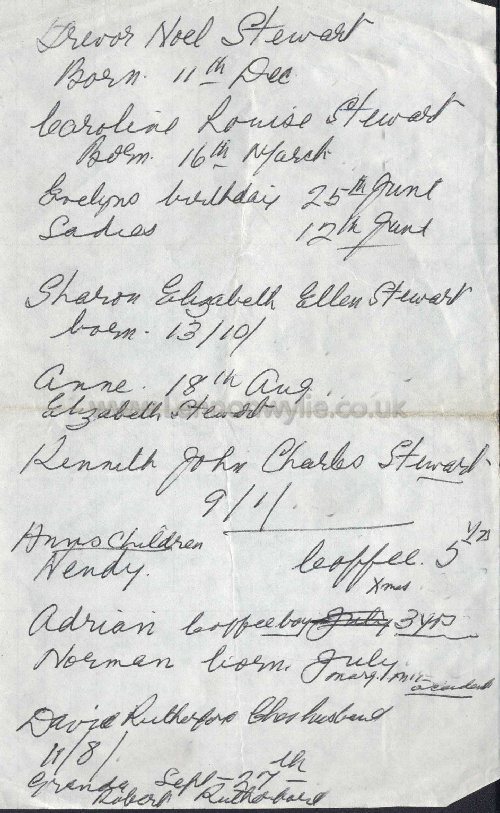 Trevor Noel Stewart
Born. 11th Dec
Caroline Louise Stewart
Born. 16th March
Evelyns birthday 25th June
Sadies 12th June
Sharon Elizabeth Ellen Stewart
born. 13/10/
Anne. 18th Aug.
Elizabeth Stewart
www.lennonwylie.co.uk
Kenneth John Charles Stewart
9/1/
Anns Children
Wendy. Coffee. 5 1/2
Xmas
Adrian Coffee boy July 3 yrs
Norman born. July
accident
David Rutherford husband
11/8/
Granda Sept 27th
Robert Rutherford